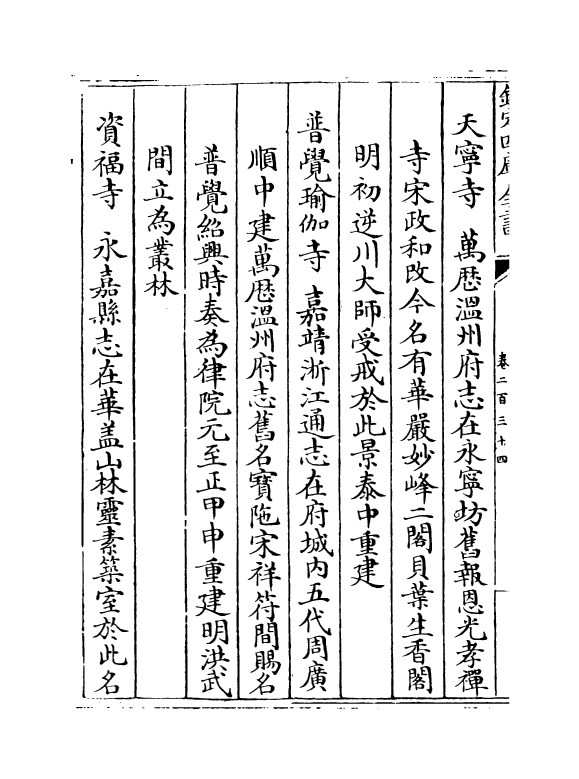 欽定四庫全書
卷二百三十四
天寧寺　萬厯溫州府志在永寧坊舊報恩光孝禪
寺宋政和改今名有華嚴妙峰二閣貝葉生香閣
明初逆川大師受戒於此景泰中重建
普覺瑜伽寺　嘉靖浙江通志在府城内五代周廣
順中建萬厯溫州府志舊名寶陁宋祥符間賜名
普覺紹興時奏為律院元至正甲申重建明洪武
間立為叢林
資福寺　永嘉縣志在華盖山林靈素築室於此名